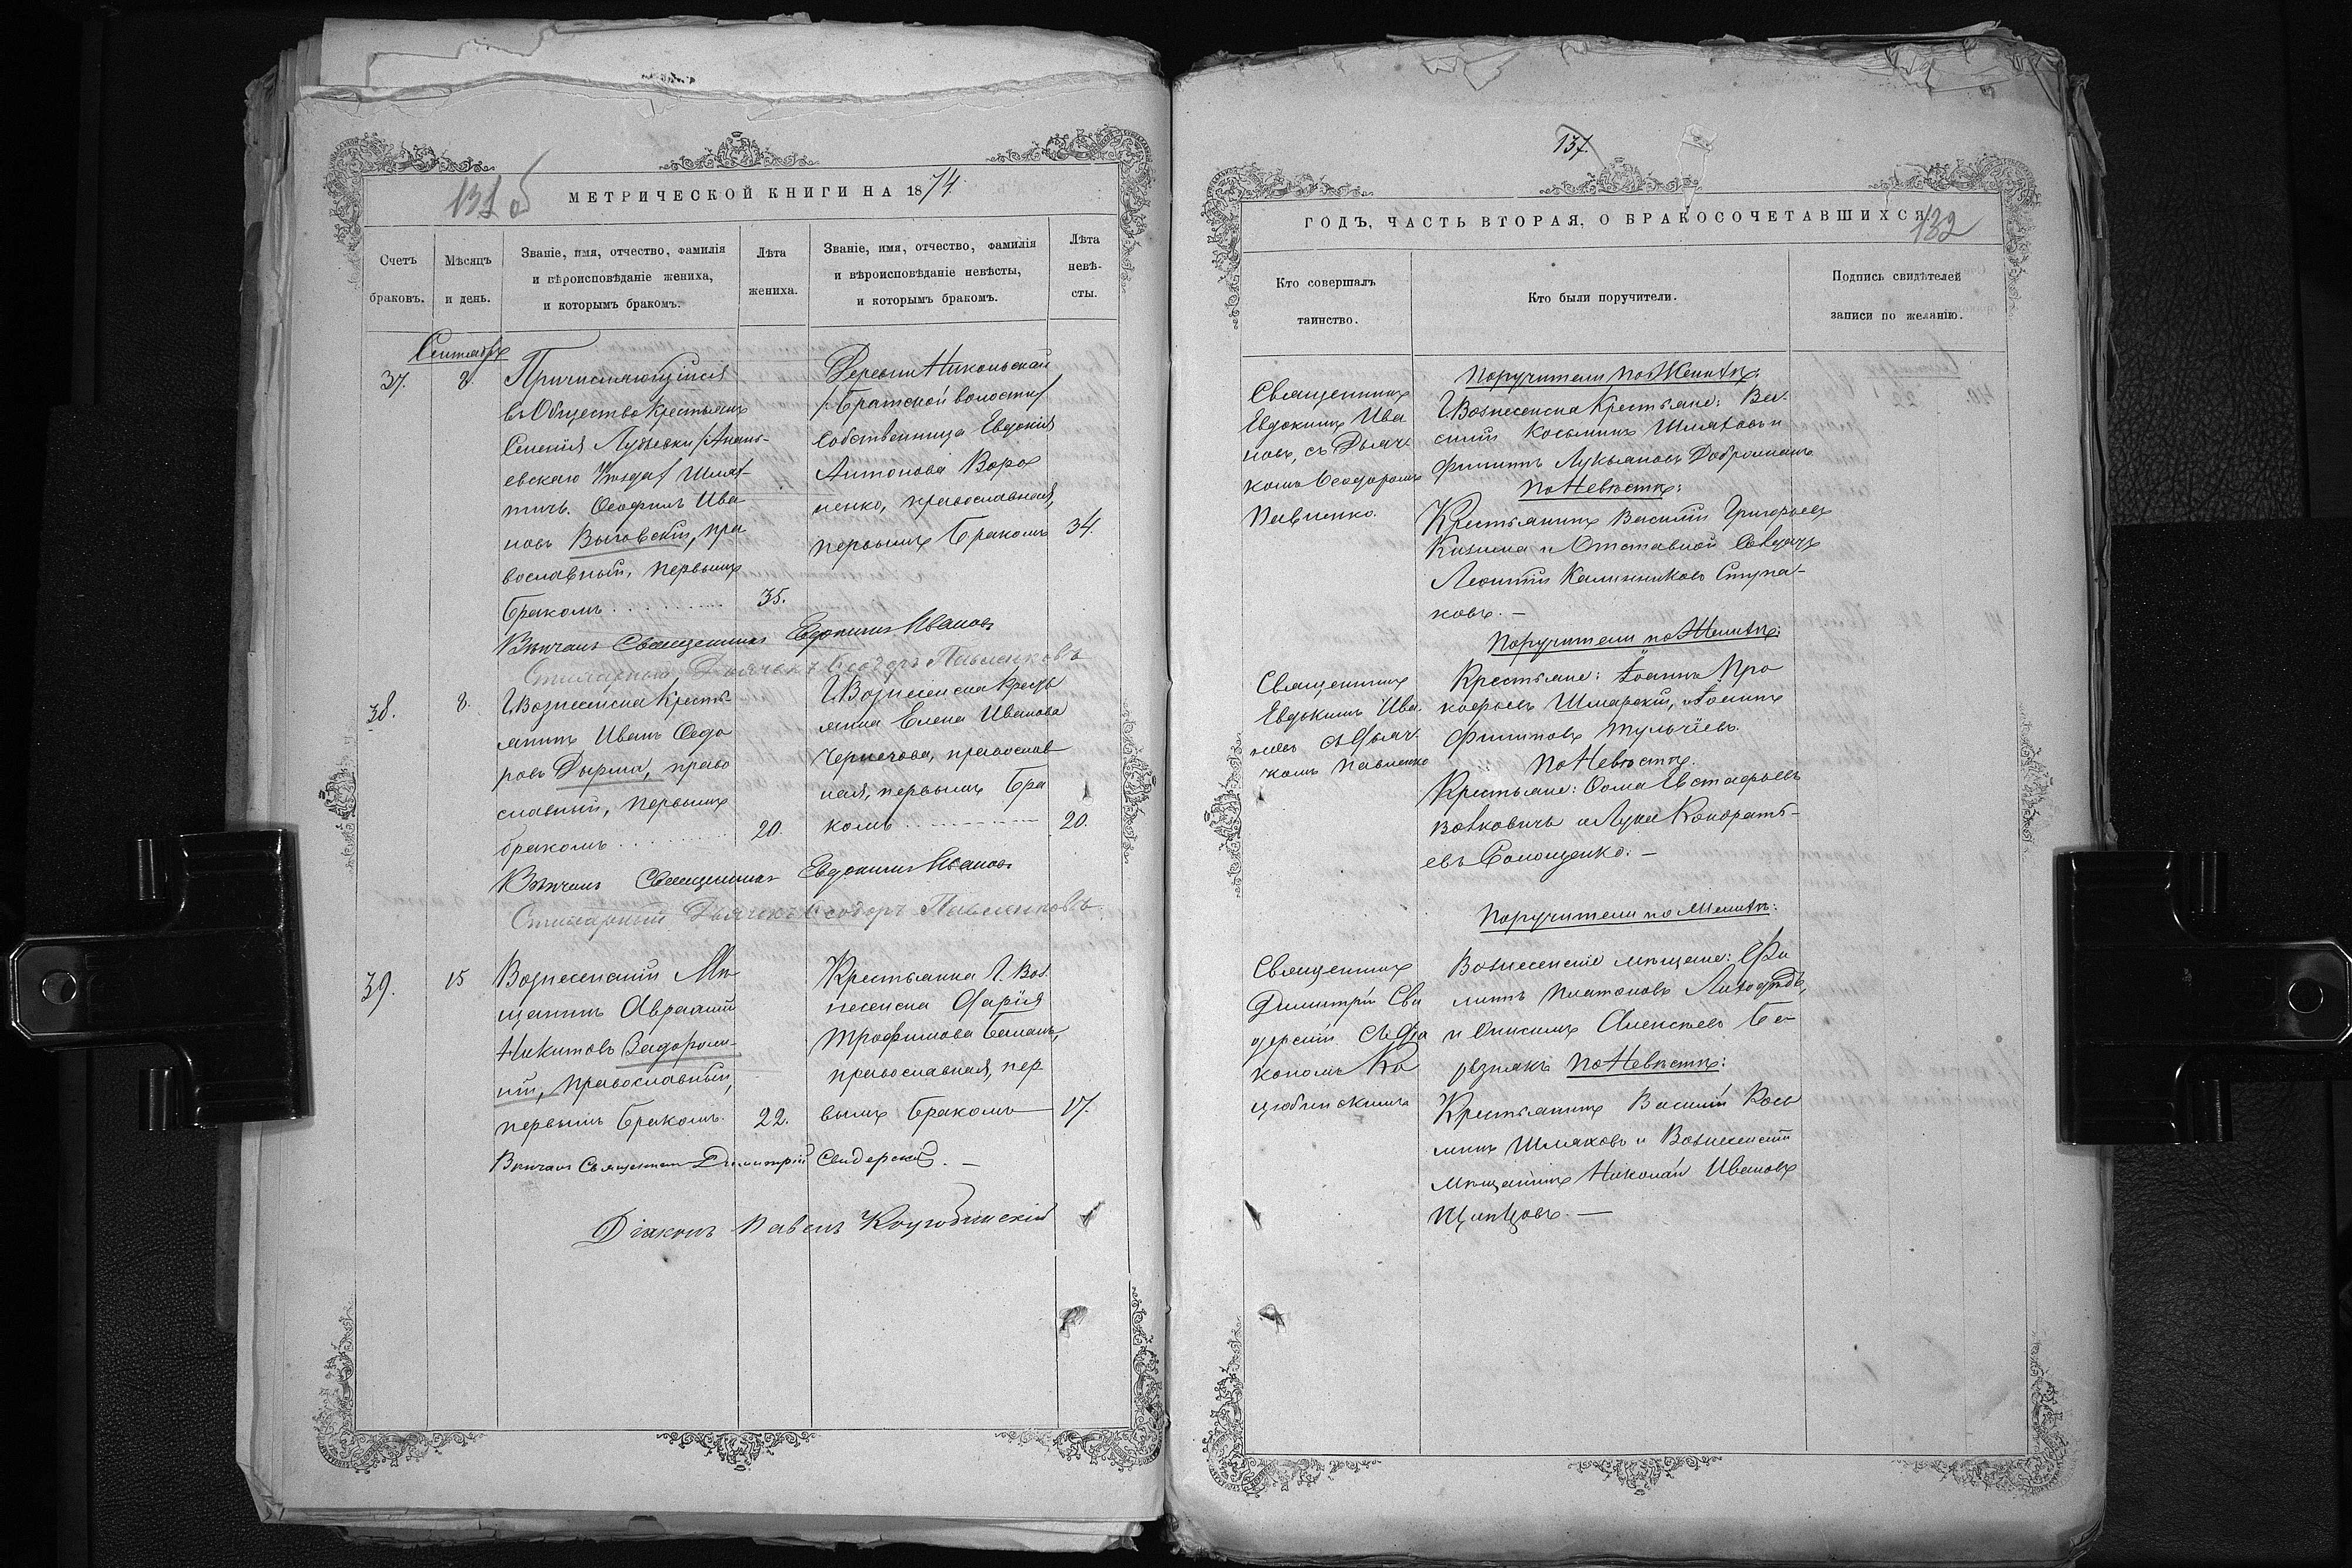 131 об
МЕТРИЧЕСКОЙ КНИГИ НА 1874
Счетъ
браковъ.
Мѣсяцъ
и день.
Званіе, имя, отчество, фамилія
и вѣроисповѣданіе жениха,
и которымъ бракомъ.
Лѣта
жениха.
Званіе, имя, отчество, фамилія
и вѣроисповѣданіе невѣсты,
и которымъ бракомъ.
Лѣта
невѣ-
сты.
Сентябрь
37.
8.
Причисляющійся
въ Общество Крестьянъ
Селенія Лубявки /Анань-
евскаго Уѣзда/ Шлях-
тичъ Ѳеофилъ Ива
новъ Выговскій, пра
вославный, первымъ
бракомъ
35.
Деревни Никольской
/Братской волости/
Собственница Евдокія
Антонова Воро
ненко, православная,
первымъ бракомъ
34.
Вѣнчалъ Священникъ Евдокимъ Ивановъ
Дьячекъ Ѳеодоръ Павленковъ
38.
8.
Г. Вознесенска Кресть
янинъ Иванъ Ѳедо
ровъ Дырма, право
славный, первымъ
бракомъ
20.
Г. Вознесенска Кресть
янка Елена Иванова
Чернечова, православ
ная, первымъ бра
комъ
20.
Вѣнчалъ Священникъ Евдокимъ Ивановъ
Дьячекъ Ѳеодоръ Павленковъ
39.
15
Вознесенскій Мѣ
щанинъ Авраамій
Никитовъ Задорож-
ній, православный,
первымъ бракомъ.
22.
Крестьянка Г. Воз
несенска Дарія
Трофимова
православная, пер
вымъ бракомъ
17.
Вѣнчалъ Священникъ Димитрій Свидерскій.
Діаконъ Павелъ Коцюбинскій
137
ГОДЪ, ЧАСТЬ ВТОРАЯ, О БРАКОСОЧЕТАВШИХСЯ.
132
Кто совершалъ
таинство.
Кто были поручители.
Подпись свидѣтелей
записи по желанію.
Священникъ
Евдокимъ Ива
новъ, съ Дьяч
комъ Ѳеодоромъ
Павленко.
Поручители по Женихѣ:
Г. Вознесенска Крестьяне: Ва-
силій Косьминъ Шляховъ и
Филиппъ Лукьяновъ
По Невѣстѣ:
Крестьянинъ Василій Григорьевъ
Кизима и Отставной
Леонтій Калинниковъ Ступа-
ковъ. —
Священникъ
Евдокимъ Ива
новъ съ Дьяч
комъ Павленко
Поручители по Женихѣ:
Крестьяне: Іоаннъ Про
кофьевъ Шмарскій, Іоаннъ
Филиповъ Тульчіевъ.
По Невѣстѣ.
Крестьяне: Ѳома Евстафьевъ
Вовковичъ и Лука Кондрать-
евъ Солощенко. —
Священникъ
Димитрій Сви
дерскій съ Діа
кономъ Ко
цюбинскимъ
Поручители по Женихѣ:
Вознесенскіе мѣщане: Фи
липъ Платоновъ Лиходѣдъ,
и Онисимъ Алексѣевъ Бе-
резнякъ По Невѣстѣ:
Крестьянинъ Василій Кось
минъ Шляховъ и Вознесенскій
Мѣщанинъ Николай Ивановъ